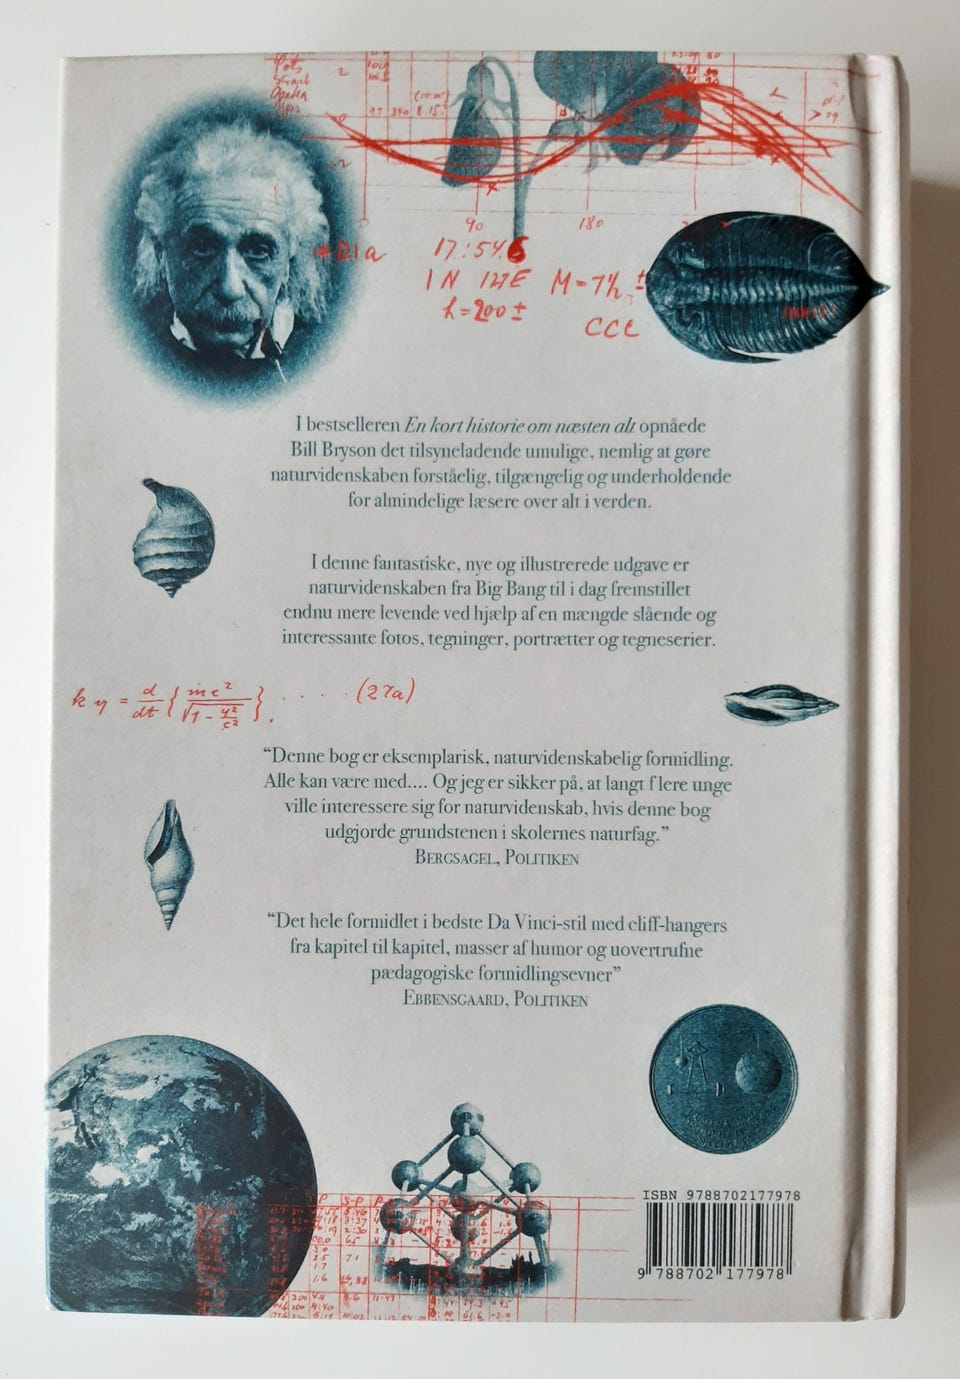 90
180
17:54.6
1 N 127E
M=7½ ±
h=200±
CCC
I bestselleren En kort historie om næsten alt opnåede
Bill Bryson det tilsyneladende umulige, nemlig at gøre
naturvidenskaben forståelig, tilgængelig og underholdende
for almindelige læsere over alt i verden.
I denne fantastiske, nye og illustrerede udgave er
naturvidenskaben fra Big Bang til i dag fremstillet
endnu mere levende ved hjælp af en mængde slående og
interessante fotos, tegninger, portrætter og tegneserier.
k y = d/dt { mc² / √1 - y²/c² }. . . . . (27a)
“Denne bog er eksemplarisk, naturvidenskabelig formidling.
Alle kan være med.... Og jeg er sikker på, at langt flere unge
ville interessere sig for naturvidenskab, hvis denne bog
udgjorde grundstenen i skolernes naturfag.”
BERGSAGEL, POLITIKEN
“Det hele formidlet i bedste Da Vinci-stil med cliff-hangers
fra kapitel til kapitel, masser af humor og uovertrufne
pædagogiske formidlingsevner”
EBBENSGAARD, POLITIKEN
ISBN 9788702177978
9 788702 177978